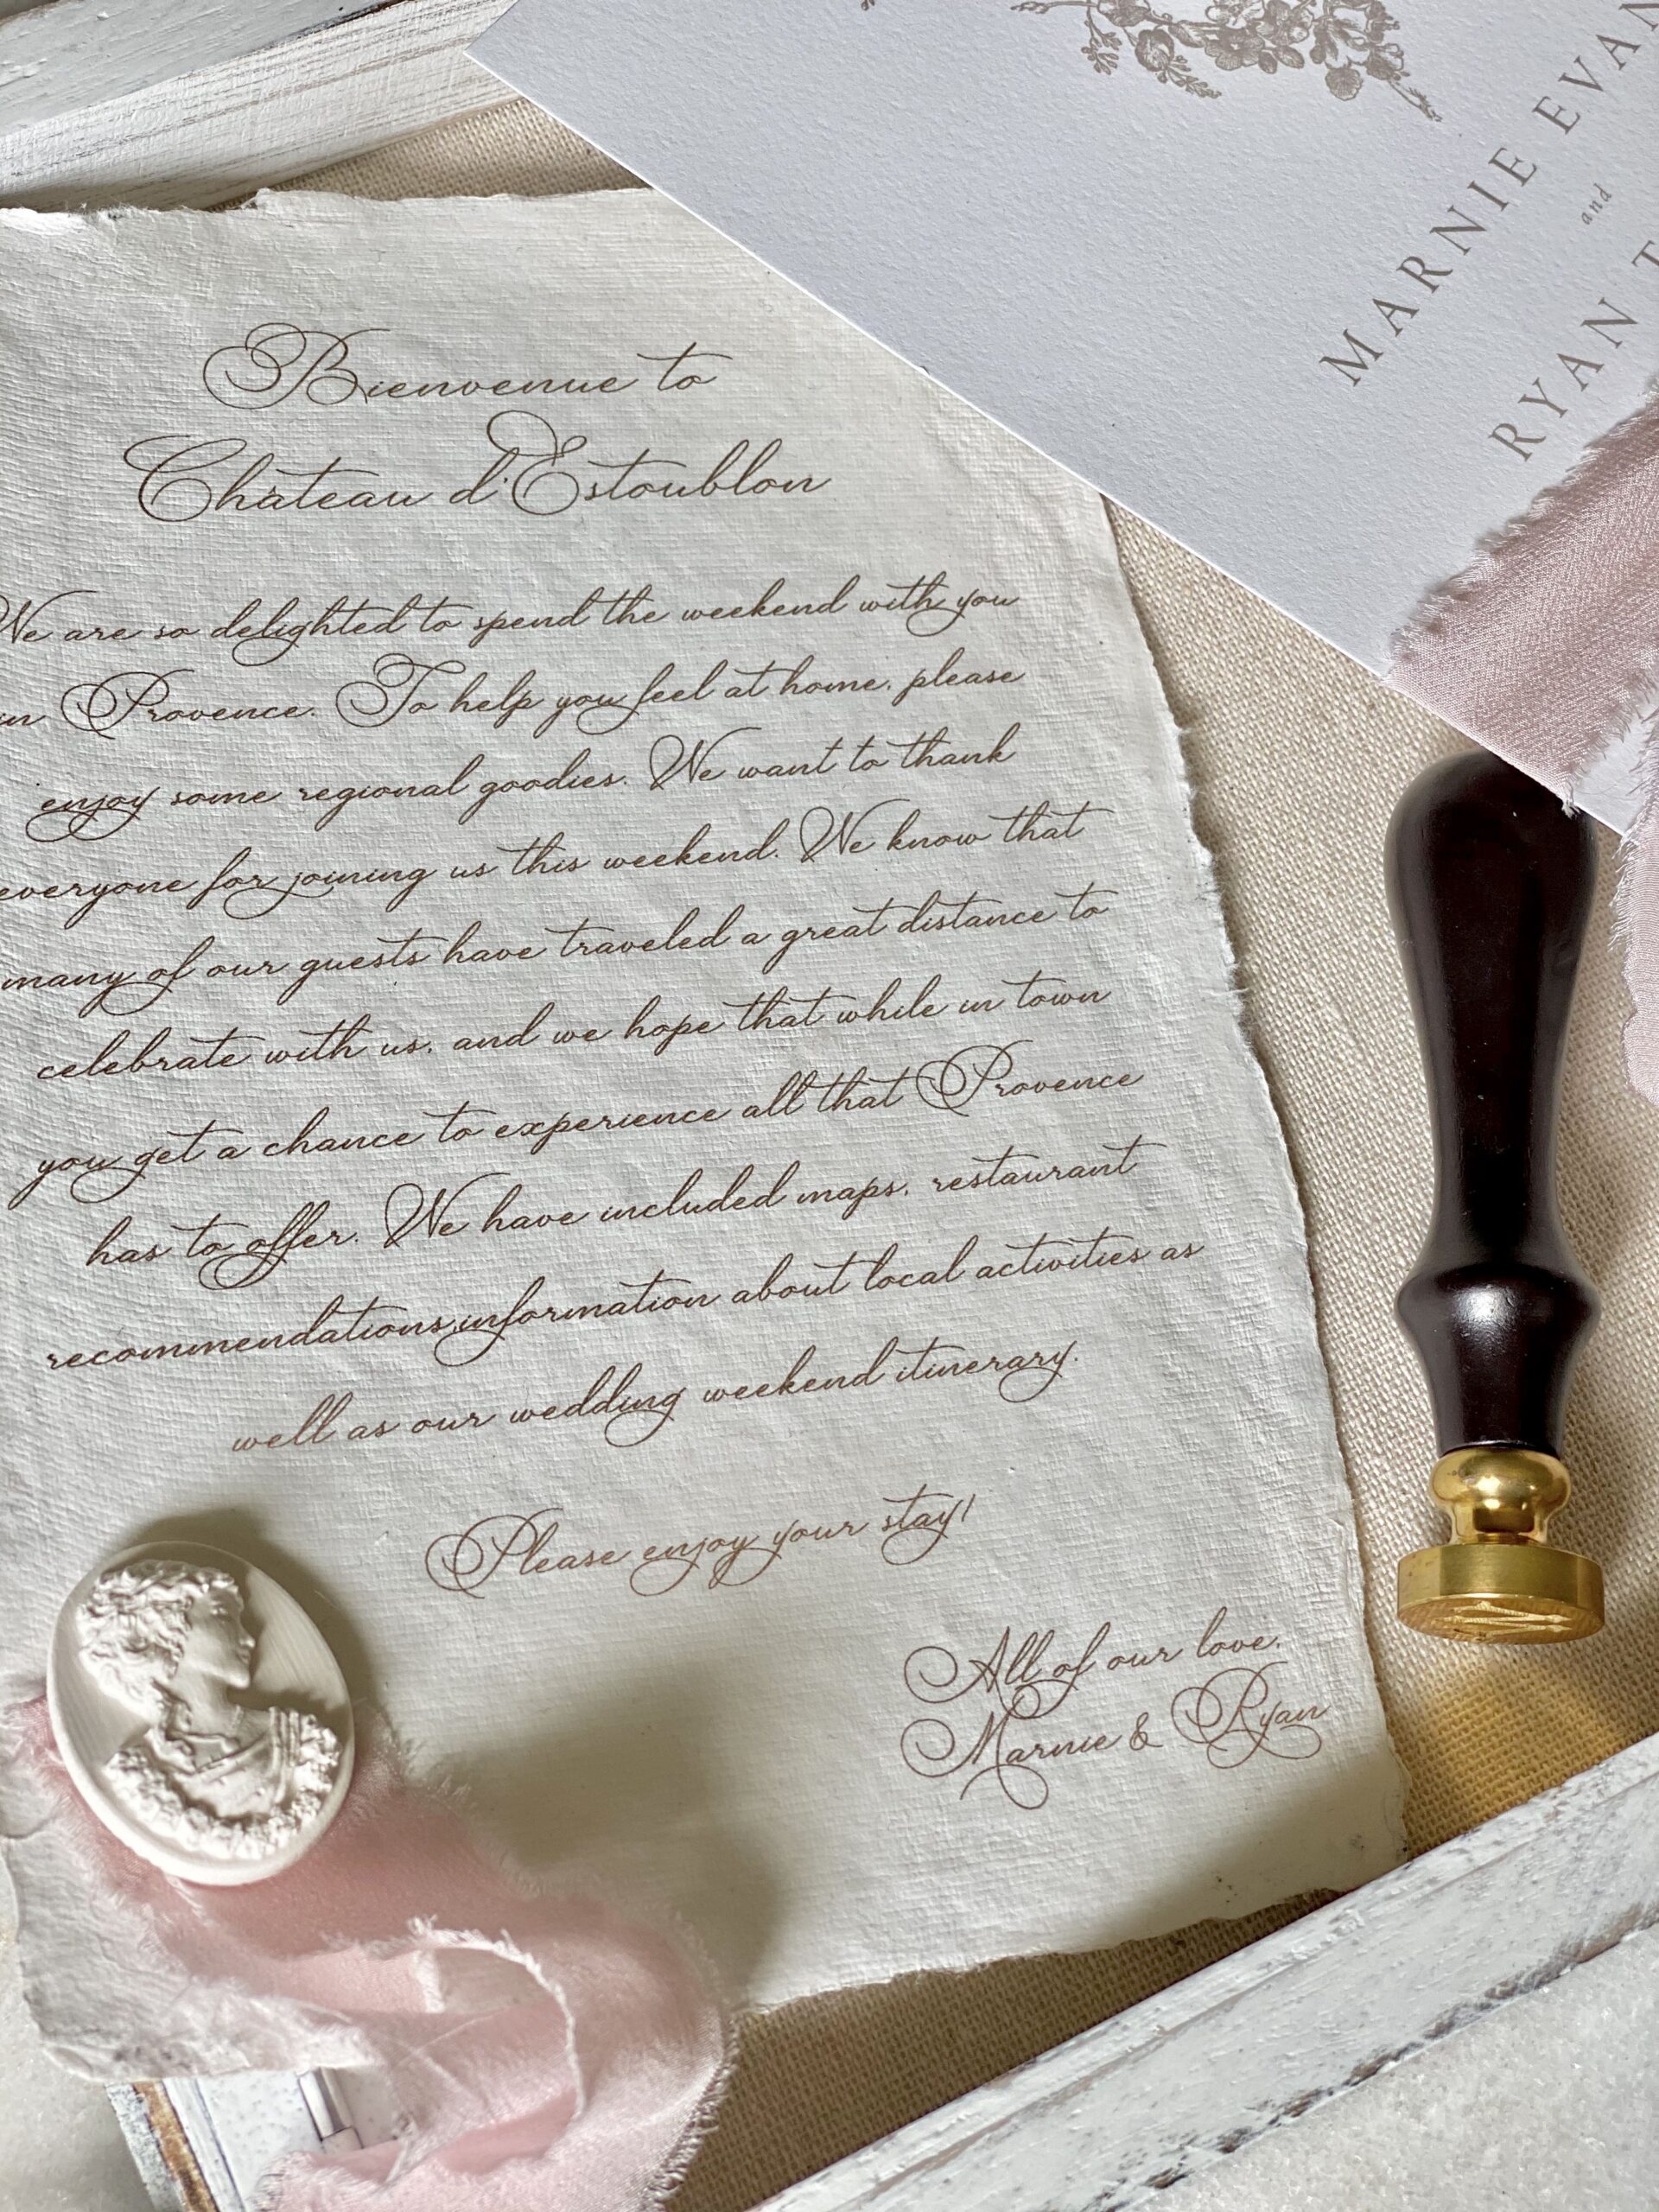 Bienvenue to
Château d'Estoublon
We are so delighted to spend the weekend with you
in Provence. To help you feel at home, please
enjoy some regional goodies. We want to thank
everyone for joining us this weekend. We know that
many of our guests have traveled a great distance to
celebrate with us, and we hope that while in town
you get a chance to experience all that Provence
has to offer. We have included maps, restaurant
recommendations,information about local activities as
well as our wedding weekend itinerary.
Please enjoy your stay!
All of our love,
Marnie & Ryan
MARNIE EVAN
and
RYAN T